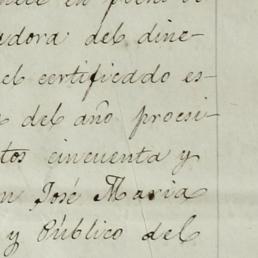 adora del dine-
el certificado es-
del año procsi-
tos cincuenta y
n José Maria
y Público del